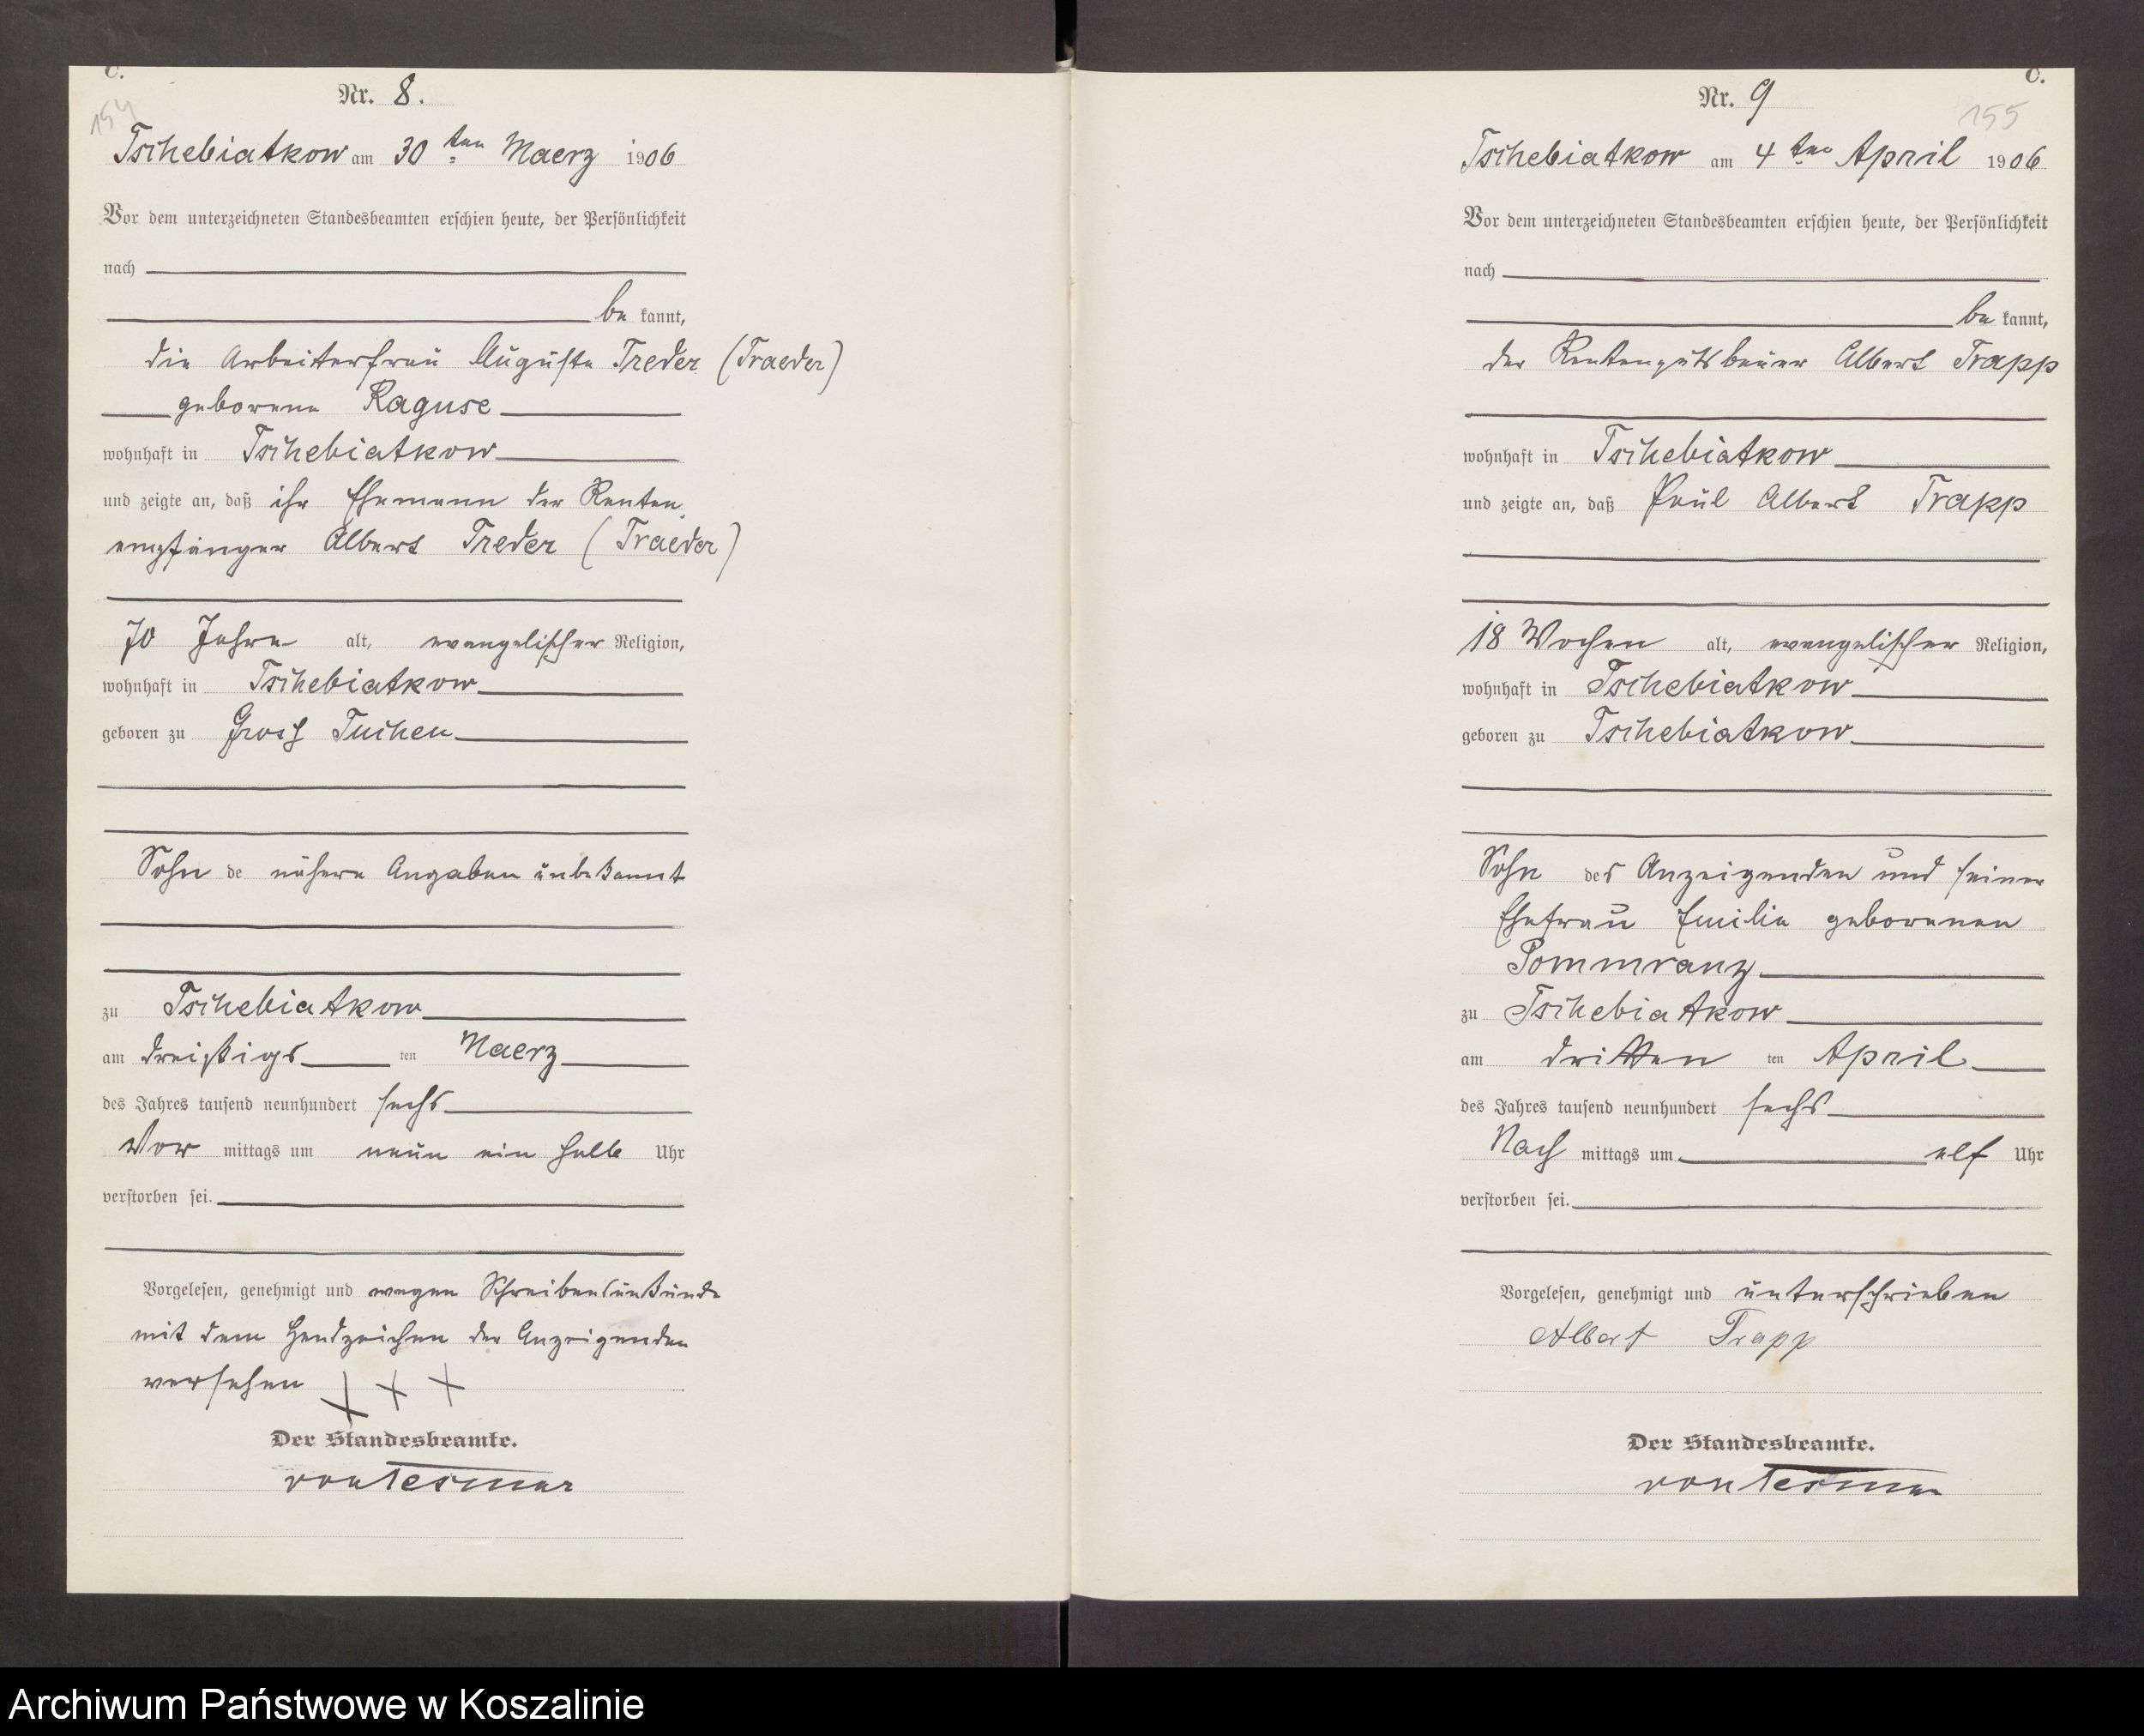 C.
154
Nr. 8.
Tschebiatkow am 30 ten Maerz 1906
Vor dem unterzeichneten Standesbeamten erschien heute, der Persönlichkeit
nach
be kannt,
die Arbeiterfrau Auguste Treder (Traeder)
geborene Raguse
wohnhaft in Tschebiatkow
und zeigte an, daß ihr Ehemann der Renten
empfänger Albert Treder (Traeder)
70 Jahre alt, evangelischer Religion,
wohnhaft in Tschebiatkow
geboren zu Groß Tuchen
Sohn de nähere Angaben unbekannt
zu Tschebiatkow
am dreißigs ten Maerz
des Jahres tausend neunhundert sechs
Vor mittags um neun ein halb Uhr
verstorben sei.
Vorgelesen, genehmigt und wegen Schreibensunkunde
mit dem Handzeichen der Anzeigenden
versehen + + +
Der Standesbeamte.
von Tesmar
C.
155
Nr. 9
Tschebiatkow am 4 ten April 1906
Vor dem unterzeichneten Standesbeamten erschien heute, der Persönlichkeit
nach
be kannt,
der Rentengutsbauer Albert Trapp
wohnhaft in Tschebiatkow
und zeigte an, daß Paul Albert Trapp
18 Wochen alt, evangelischer Religion,
wohnhaft in Tschebiatkow
geboren zu Tschebiatkow
Sohn des Anzeigenden und seiner
Ehefrau Emilie geborenen
Pommranz
zu Tschebiatkow
am dritten ten April
des Jahres tausend neunhundert sechs
Nach mittags um elf Uhr
verstorben sei.
Vorgelesen, genehmigt und unterschrieben
Albert Trapp
Der Standesbeamte.
von Tesmar
Archiwum Państwowe w Koszalinie